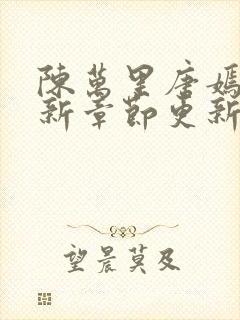 陳萬里唐嫣
新章節更新
望晨莫及